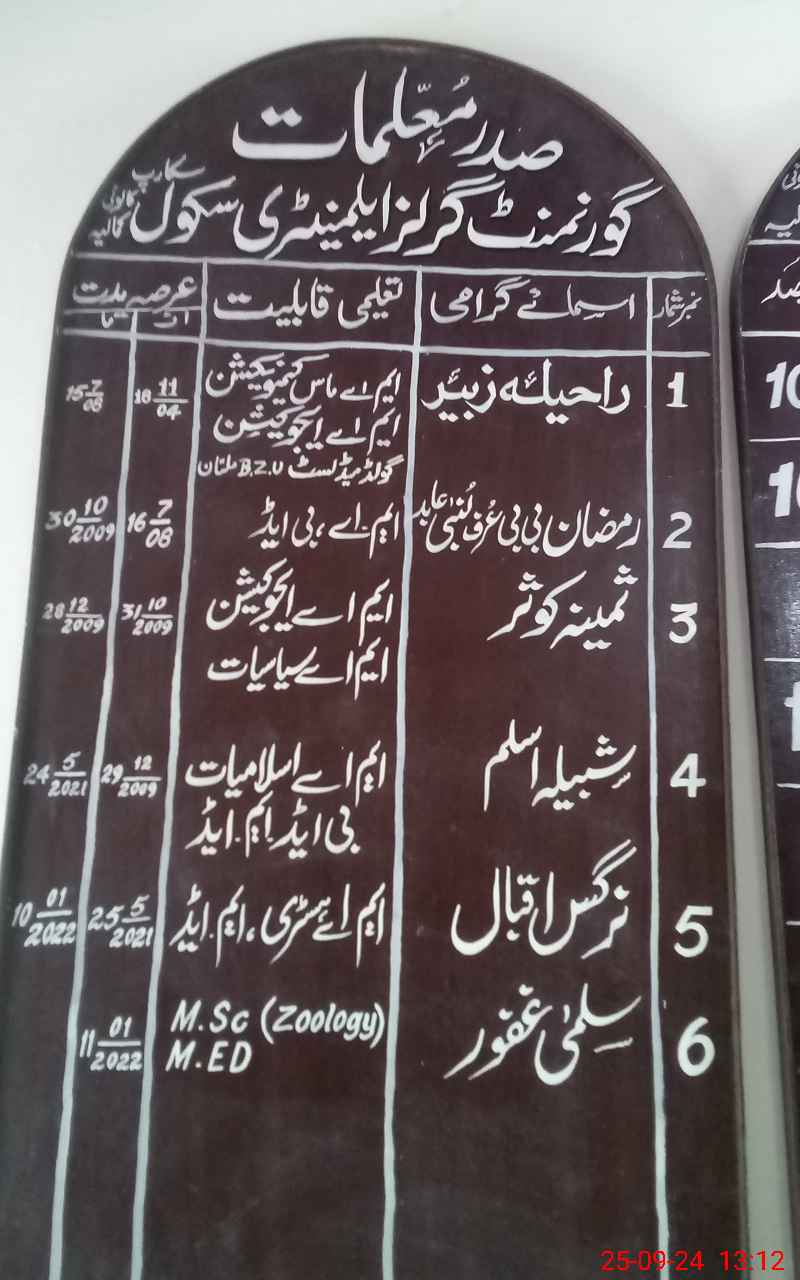 صدر معلمات
گورنمنٹ گرلز ایلیمینٹری سکول
کمالیہ
نمبر شمار اسمائے گرامی تعلیمی قابلیت عرصہ مدت
از تا
1 راحیلہ زبیر ایم اے ماس کمیونیکیشن 18 11/04 15 7/08
ایم اے ایجوکیشن
گولڈ میڈلسٹ B.Z.U ملتان
2 رمضان بی بی عرف لبنیٰ عابد ایم.اے، بی ایڈ 16 7/08 30 10/2009
3 ثمینہ کوثر ایم اے ایجوکیشن 31 10/2009 28 12/2009
ایم اے سیاسیات
4 شبیلہ اسلم ایم اے اسلامیات 29 12/2009 24 5/2021
بی ایڈ.ایم.ایڈ
5 نرگس اقبال ایم اے ہسٹری، ایم.ایڈ 25 5/2021 10 01/2022
6 سلمیٰ غفور M.Sc (Zoology) 11 01/2022
M.ED
10
25-09-24 13:12